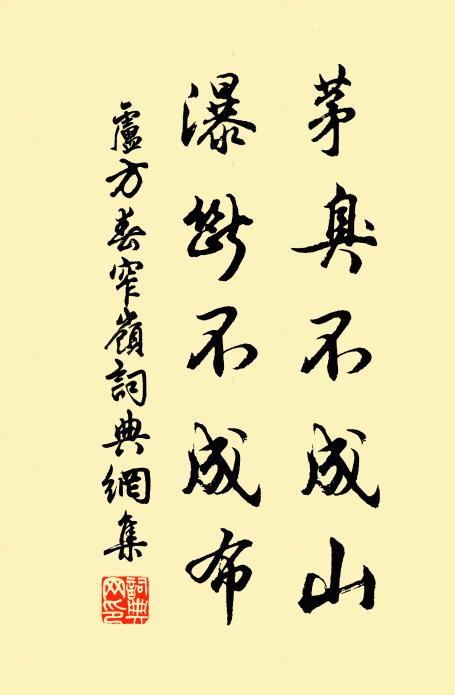 茅臭不成山
瀑斷不成布
盧方春窄嶺詞典網集
詞典
网印